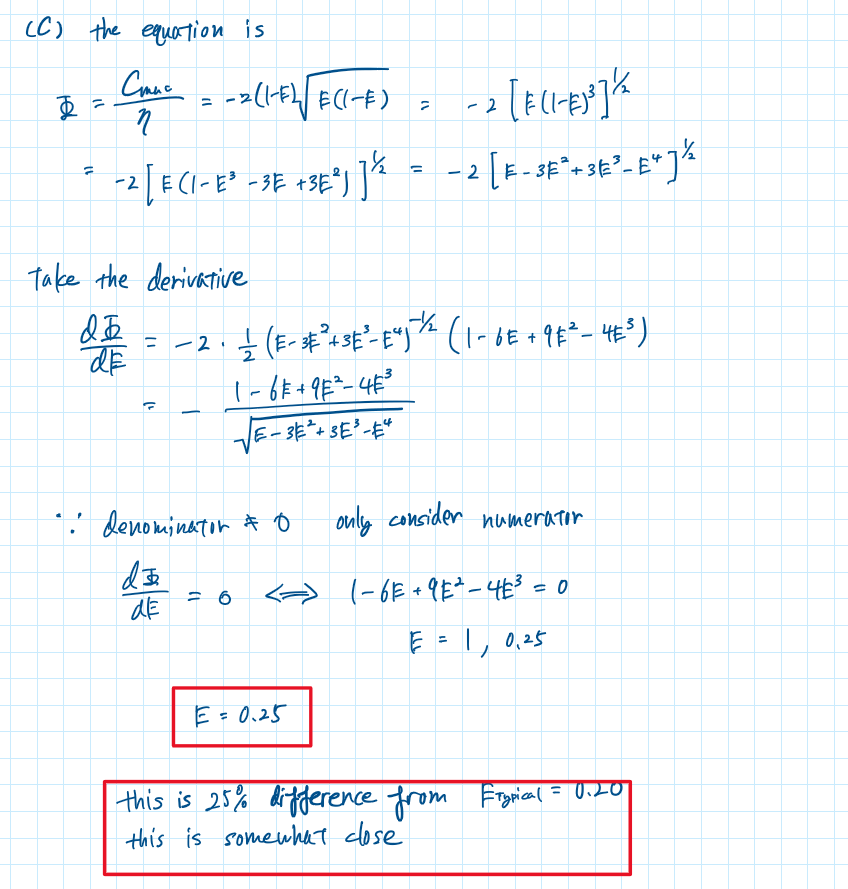 (C) the equation is
Φ = Cmac/η = -2(1-E)√E(1-E) = -2[E(1-E)³]^½
= -2[E(1-E³-3E+3E²)]^½ = -2[E-3E²+3E³-E⁴]^½
Take the derivative
dΦ/dE = -2·1/2(E-3E²+3E³-E⁴)^-½(1-6E+9E²-4E³)
= - (1-6E+9E²-4E³)/√E-3E²+3E³-E⁴
∵ denominator ≠ 0 only consider numerator
dΦ/dE = 0 ⟺ 1-6E+9E²-4E³ = 0
E = 1, 0.25
E = 0.25
this is 25% difference from ETypical = 0.20
this is somewhat close